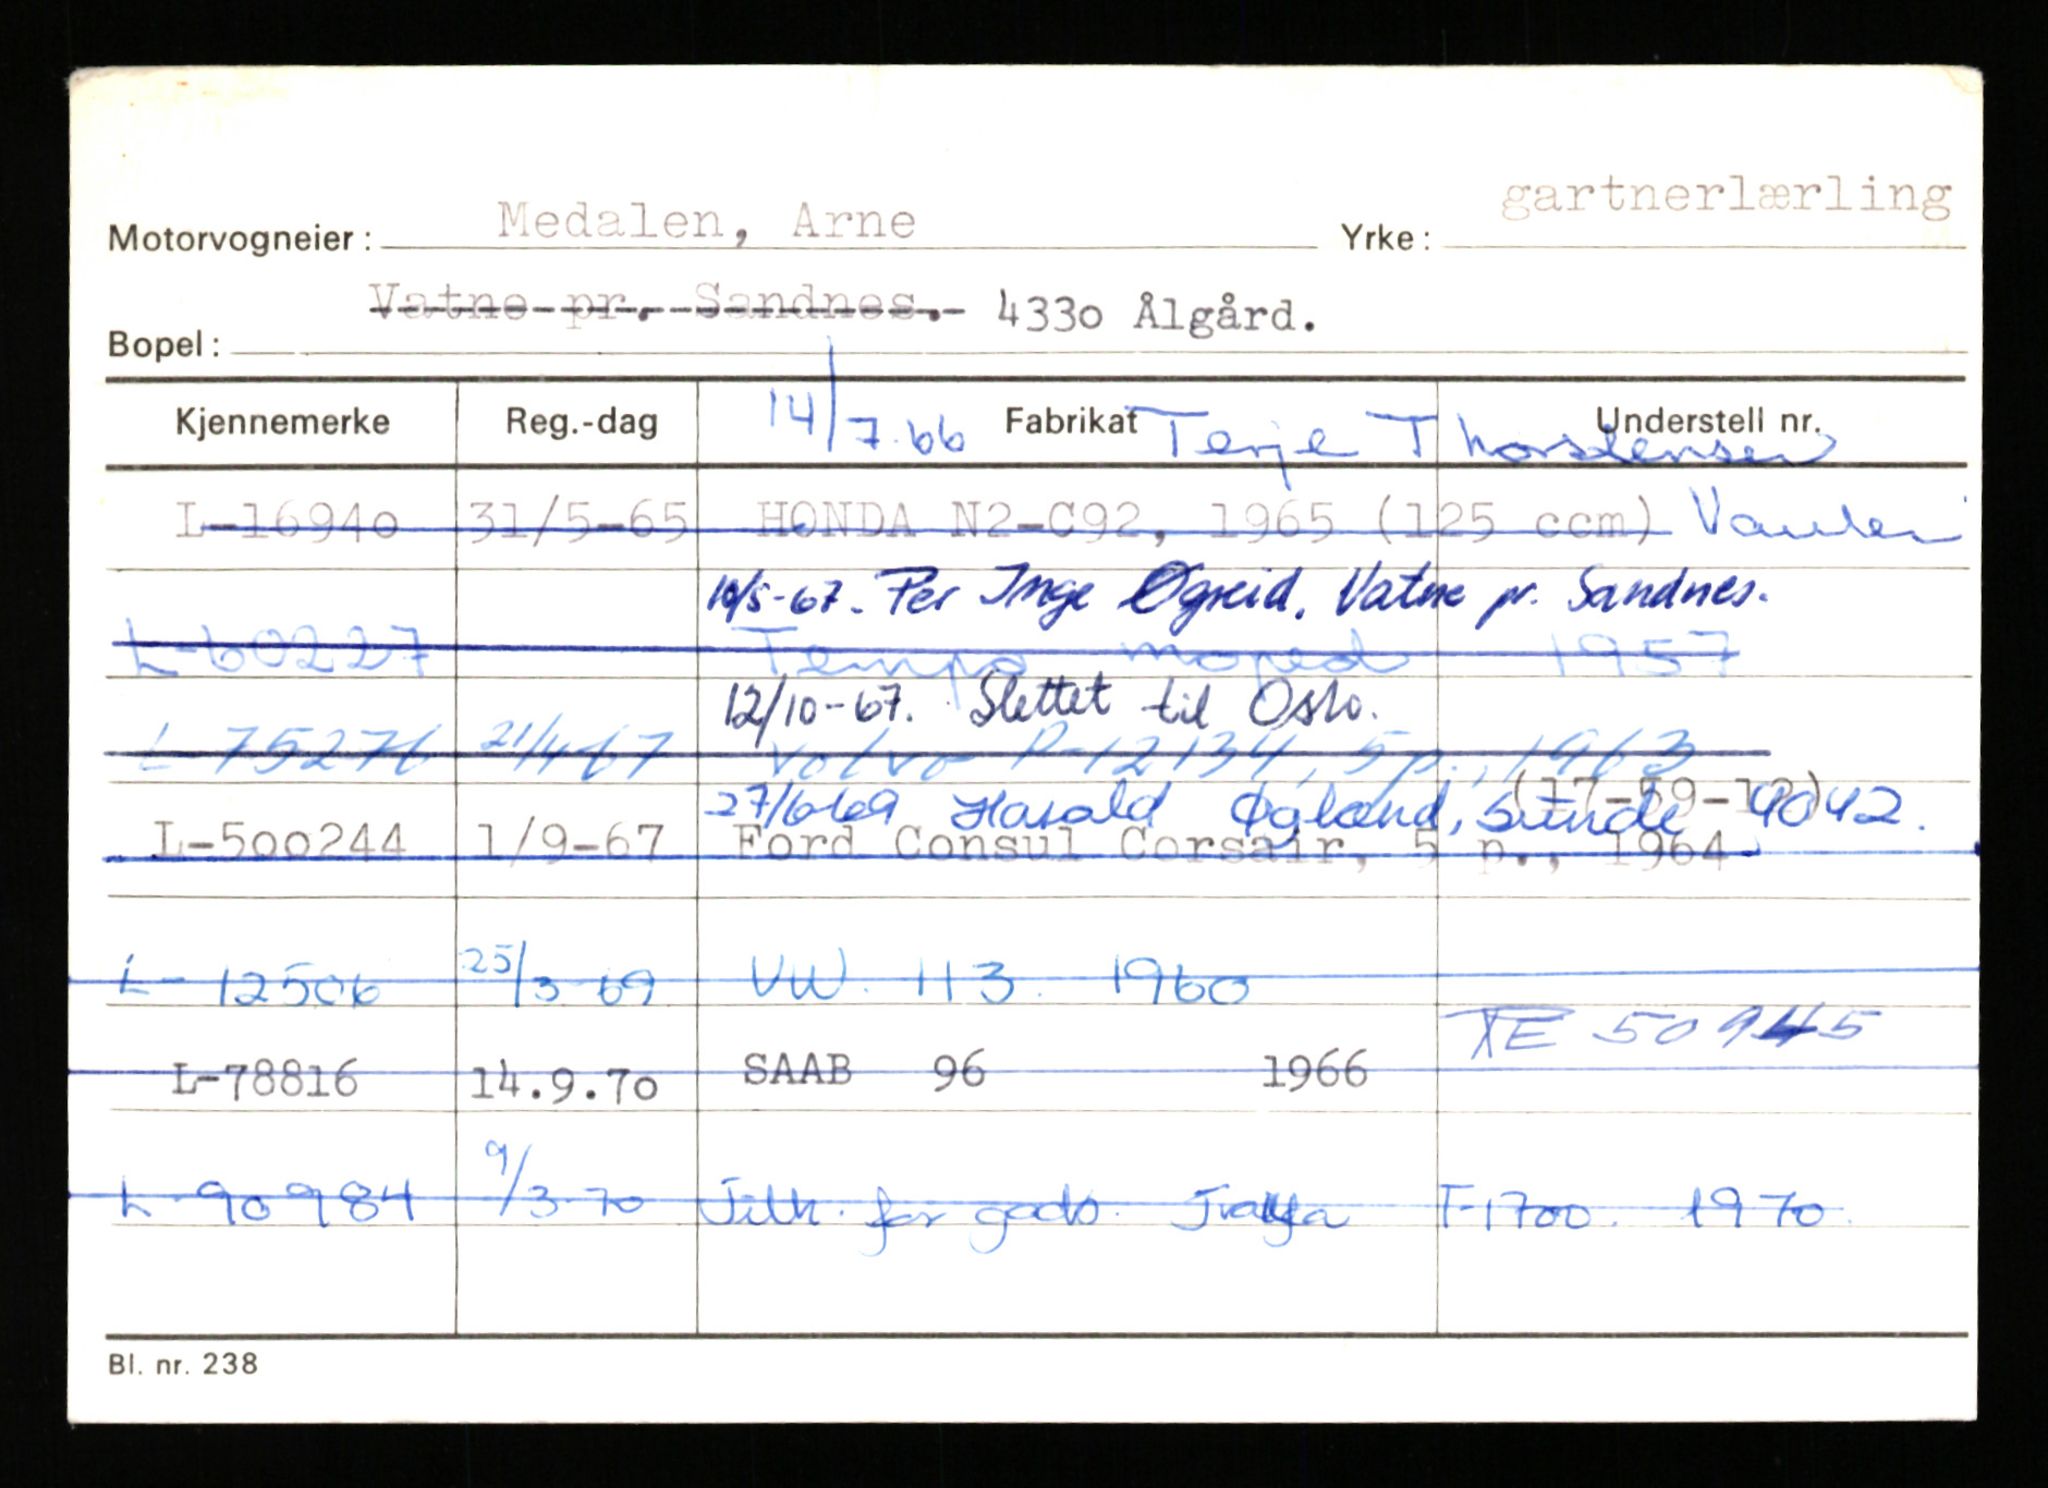 gartnerlærling
Motorvogneier: Medalen, Arne Yrke:
Vatne pr. Sandnes. 4330 Ålgård.
Bopel:
Kjennemerke Reg.-dag Fabrikat Understell nr.
14/7.66 Terje Thorstensen
L-16940 31/5-65 HONDA N2-C92, 1965 (125 ccm) Vaulen
10/5-67. Per Inge Øgreid. Vatne pr. Sandnes.
L-60227 Tempo moped 1957
12/10-67. Slettet til Oslo.
L-75276 21/4-67 Volvo P-12134, 5 p., 1963
(17-59-12)
27/6-69 Harald Øgland, Sunde 4042.
L-500244 1/9-67 Ford Consul Corsair, 5 p., 1964
L-12506 25/3-69 VW. 113. 1960
XE 50945
L-78816 14.9.70 SAAB 96 1966
L-90984 9/3-70 Tilh. for gods. T-1700. 1970.
Bl. nr. 238